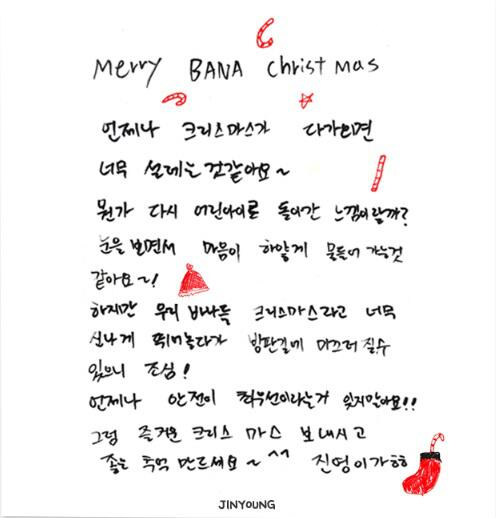 Merry BANA Christmas
언제나 크리스마스가 다가오면
너무 설레는 것같아요~
뭔가 다시 어린아이로 돌아간 느낌이랄까?
눈을 보면서 마음이 하얗게 물들어 가는것
같아요~!
하지만 우리 바나들 크리스마스라고 너무
신나게 뛰어놀다가 빙판길에 미끄러질수
있으니 조심!
언제나 안전이 최우선이라는거 잊지말아요!!
그럼 즐거운 크리스마스 보내시고
좋은 추억 만드세요~^^ 진영이가ㅎㅎ
JINYOUNG